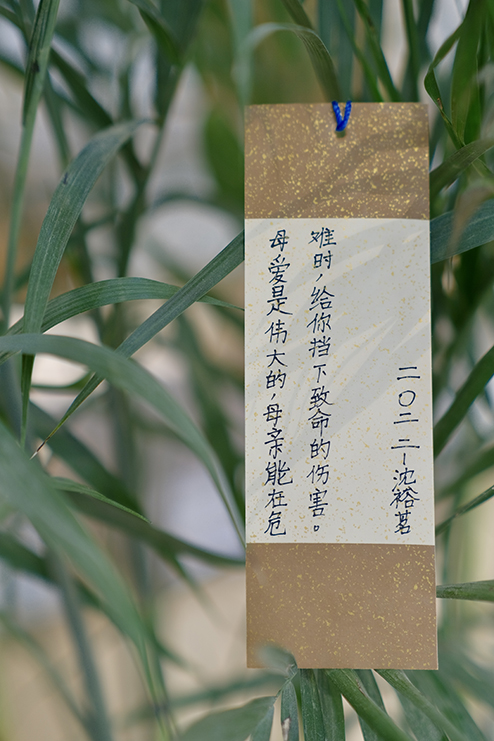 母爱是伟大的，母亲能在危
难时，给你挡下致命的伤害。
二〇二二-沈裕茗